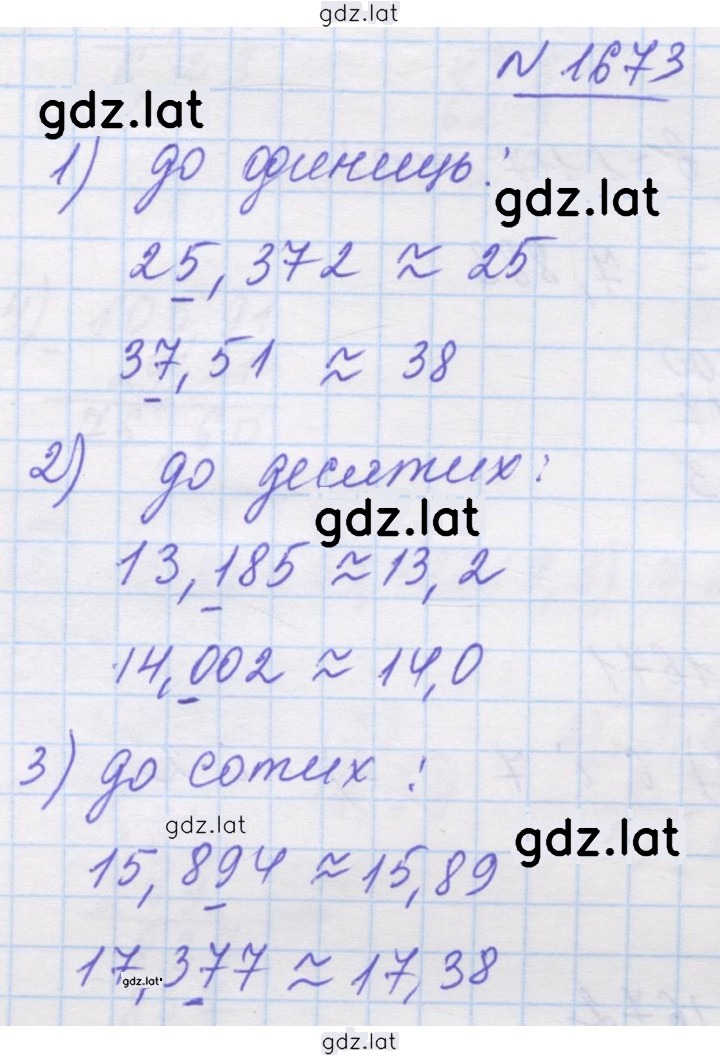 gdz.lat
N 1673
gdz.lat
1) до одиниць:
gdz.lat
25,372 ≈ 25
37,51 ≈ 38
2) до десятих:
gdz.lat
13,185 ≈ 13,2
14,002 ≈ 14,0
3) до сотих:
gdz.lat
gdz.lat
15,894 ≈ 15,89
17,377 ≈ 17,38
gdz.lat
gdz.lat